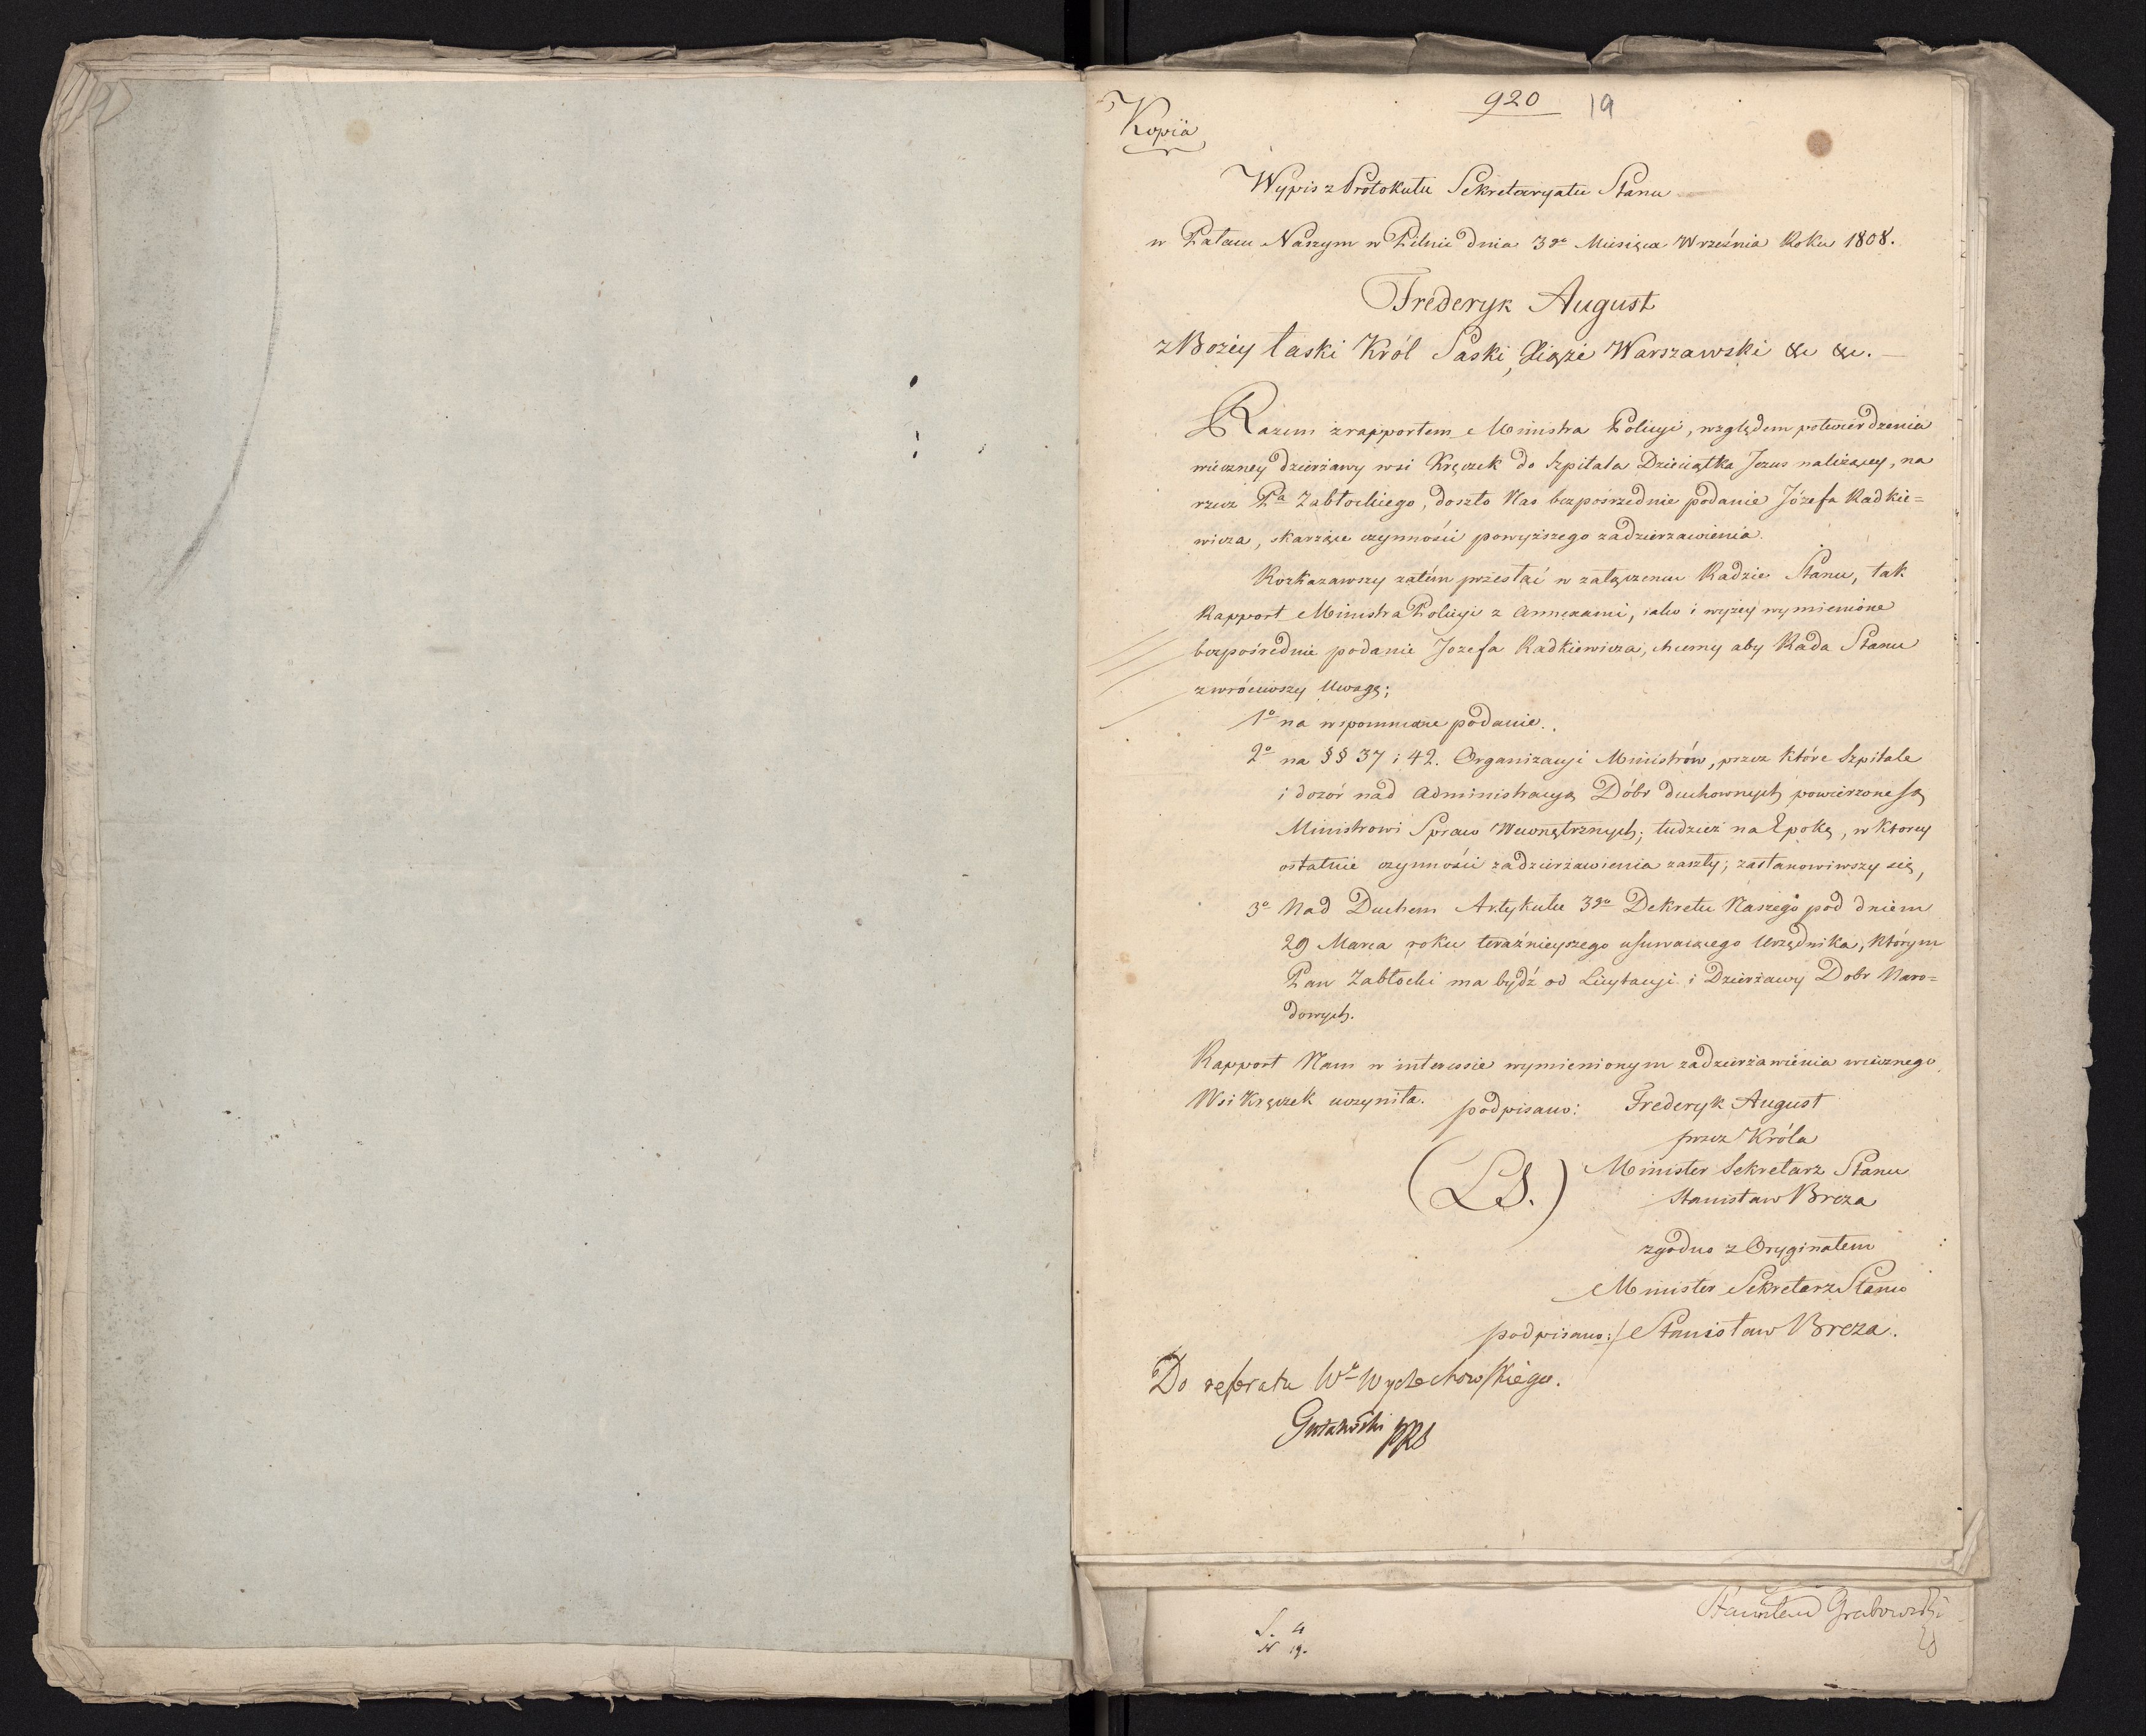 920 19
Kopia
Wypis z Protokułu Sekretaryatu Stanu
w Pałacu Naszym w Pilnic dnia 3go Miesiąca Września Roku 1808.
Frederyk August
z Bożey łaski Król Saski, Xiąże Warszawski &c &c. —
Razem z rapportem Ministra Policyi, względem potwierdzenia
wieczney dzierżawy wsi Kręczek do Szpitala Dzieciątka Jezus należącey, na
rzecz Pa Zabłockiego, doszło Nas bezpośrzednie podanie Józefa Radkie=
wicza, skarżące czynności powyższego zadzierzawienia.
Rozkazawszy zatém przesłać w załączeniu Radzie Stanu, tak
Rapport Ministra Policyi z Annexami, iako i wyżey wymienione
bezpośrednie podanie Jozefa Radkiewicza, chcemy aby Rada Stanu
zwróciwszy Uwagę;
1o na wspomniane podanie.
2o na §§ 37 i 42. Organizacyi Ministrów, przez które Szpitale
i dozór nad Administracyą Dóbr duchownych powierzone są
Ministrowi Spraw Wewnętrznych; tudzież na Epokę, w ktorey
ostatnie czynności zadzierżawienia zaszły; zastanowiwszy się,
3o Nad Duchem Artykułu 3go Dekretu Naszego pod dniem
29 Marca roku teraźnieyszego usuwaiącego Urzędnika, którym
Pan Zabłocki ma bydź od Licytacyi i Dzierżawy Dobr Naro=
dowych.
Rapport Nam w interessie wymienionym zadzierżawienia wiecznego
Wsi Kręczek uczyniła. podpisano: Frederyk August
przez Króla
Minister Sekretarz Stanu
(LS.) Stanisław Breza
zgodno z Oryginałem
Minister Sekretarz Stanu
podpisano:/ Stanisław Breza.
Do referatu Wo Wyczechowskiego.
Gutakowski PRS
Stanisław Grabowski
L. 4
N 19.